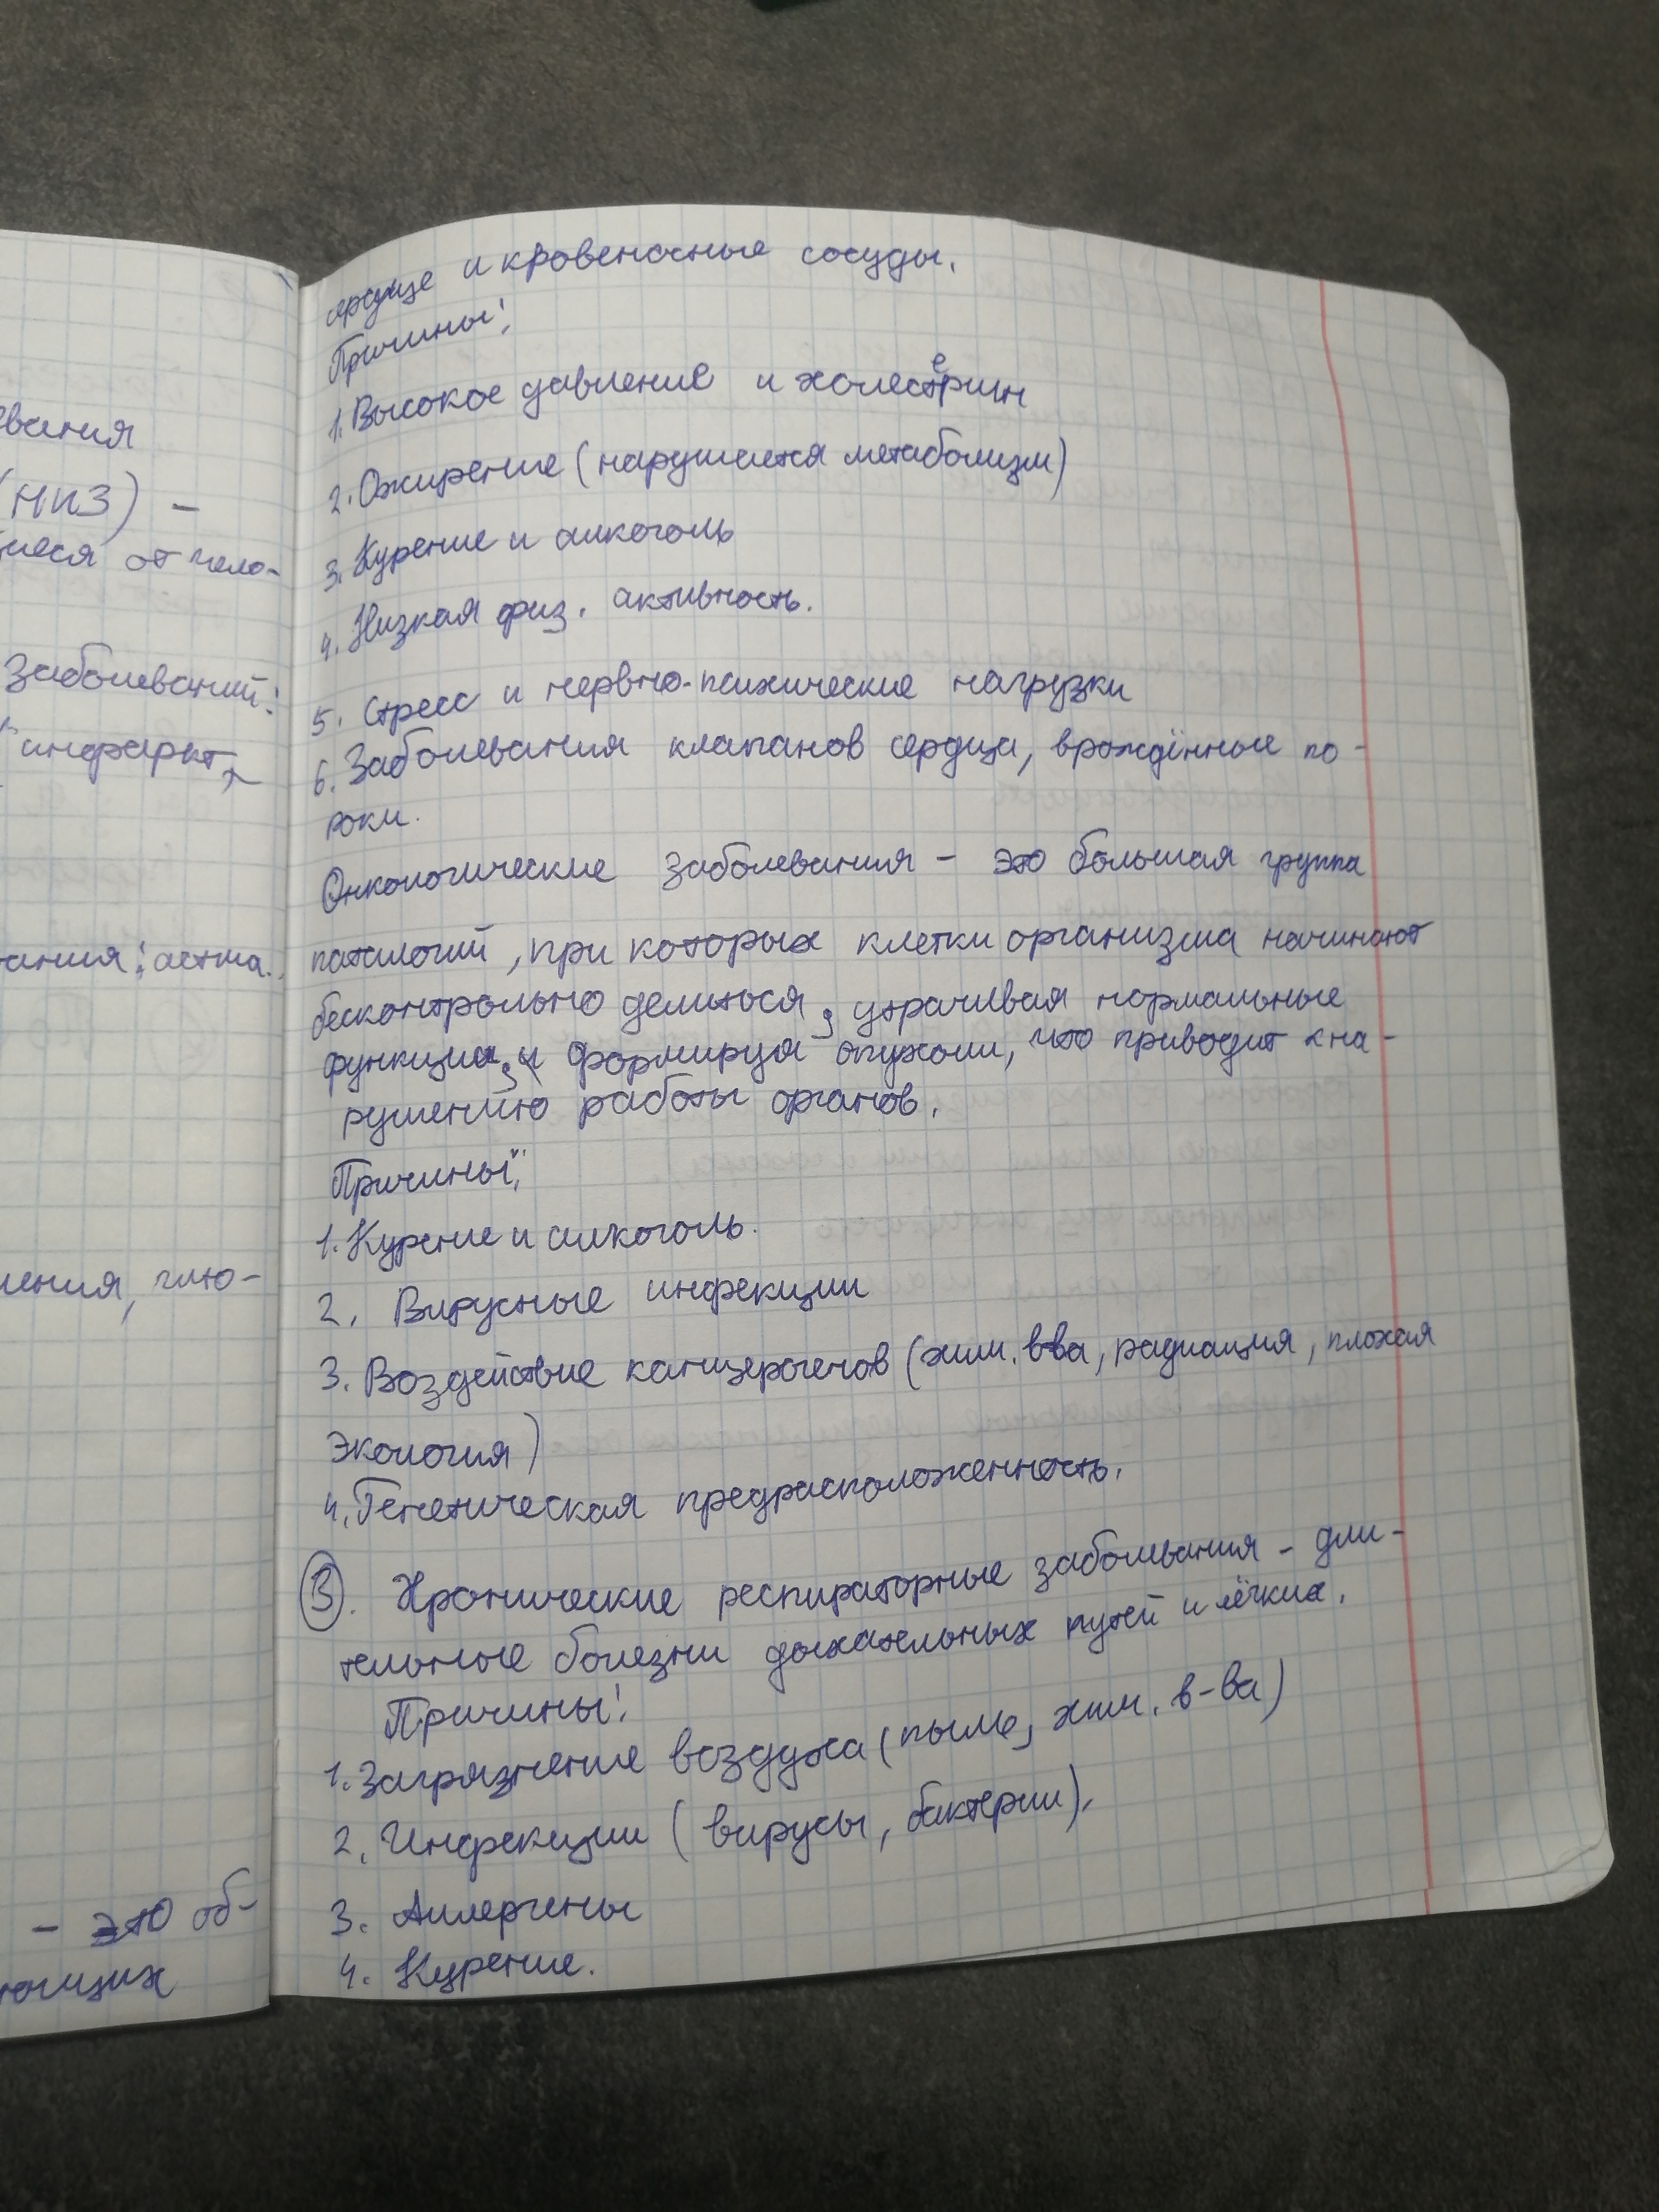 вания
(НИЗ) –
щиеся от чело-
заболеваний:
инфаркт,
ания: астма.
ления, глю-
– это об-
ющих
сердце и кровеносные сосуды.
Причины:
1. Высокое давление и холестерин
2. Ожирение (нарушается метаболизм)
3. Курение и алкоголь
4. Низкая физ. активность.
5. Стресс и нервно-психические нагрузки
6. Заболевания клапанов сердца, врождённые по-
роки.
Онкологические заболевания – это большая группа
патологий, при которых клетки организма начинают
бесконтрольно делиться, утрачивая нормальные
функции, и формируя опухоли, что приводит к на-
рушению работы органов.
Причины:
1. Курение и алкоголь.
2. Вирусные инфекции
3. Воздействие канцерогенов (хим. в-ва, радиация, плохая
экология)
4. Генетическая предрасположенность.
3. Хронические респираторные заболевания – дли-
тельные болезни дыхательных путей и лёгких.
Причины:
1. Загрязнение воздуха (пыль, хим. в-ва)
2. Инфекции (вирусы, бактерии).
3. Аллергены
4. Курение.